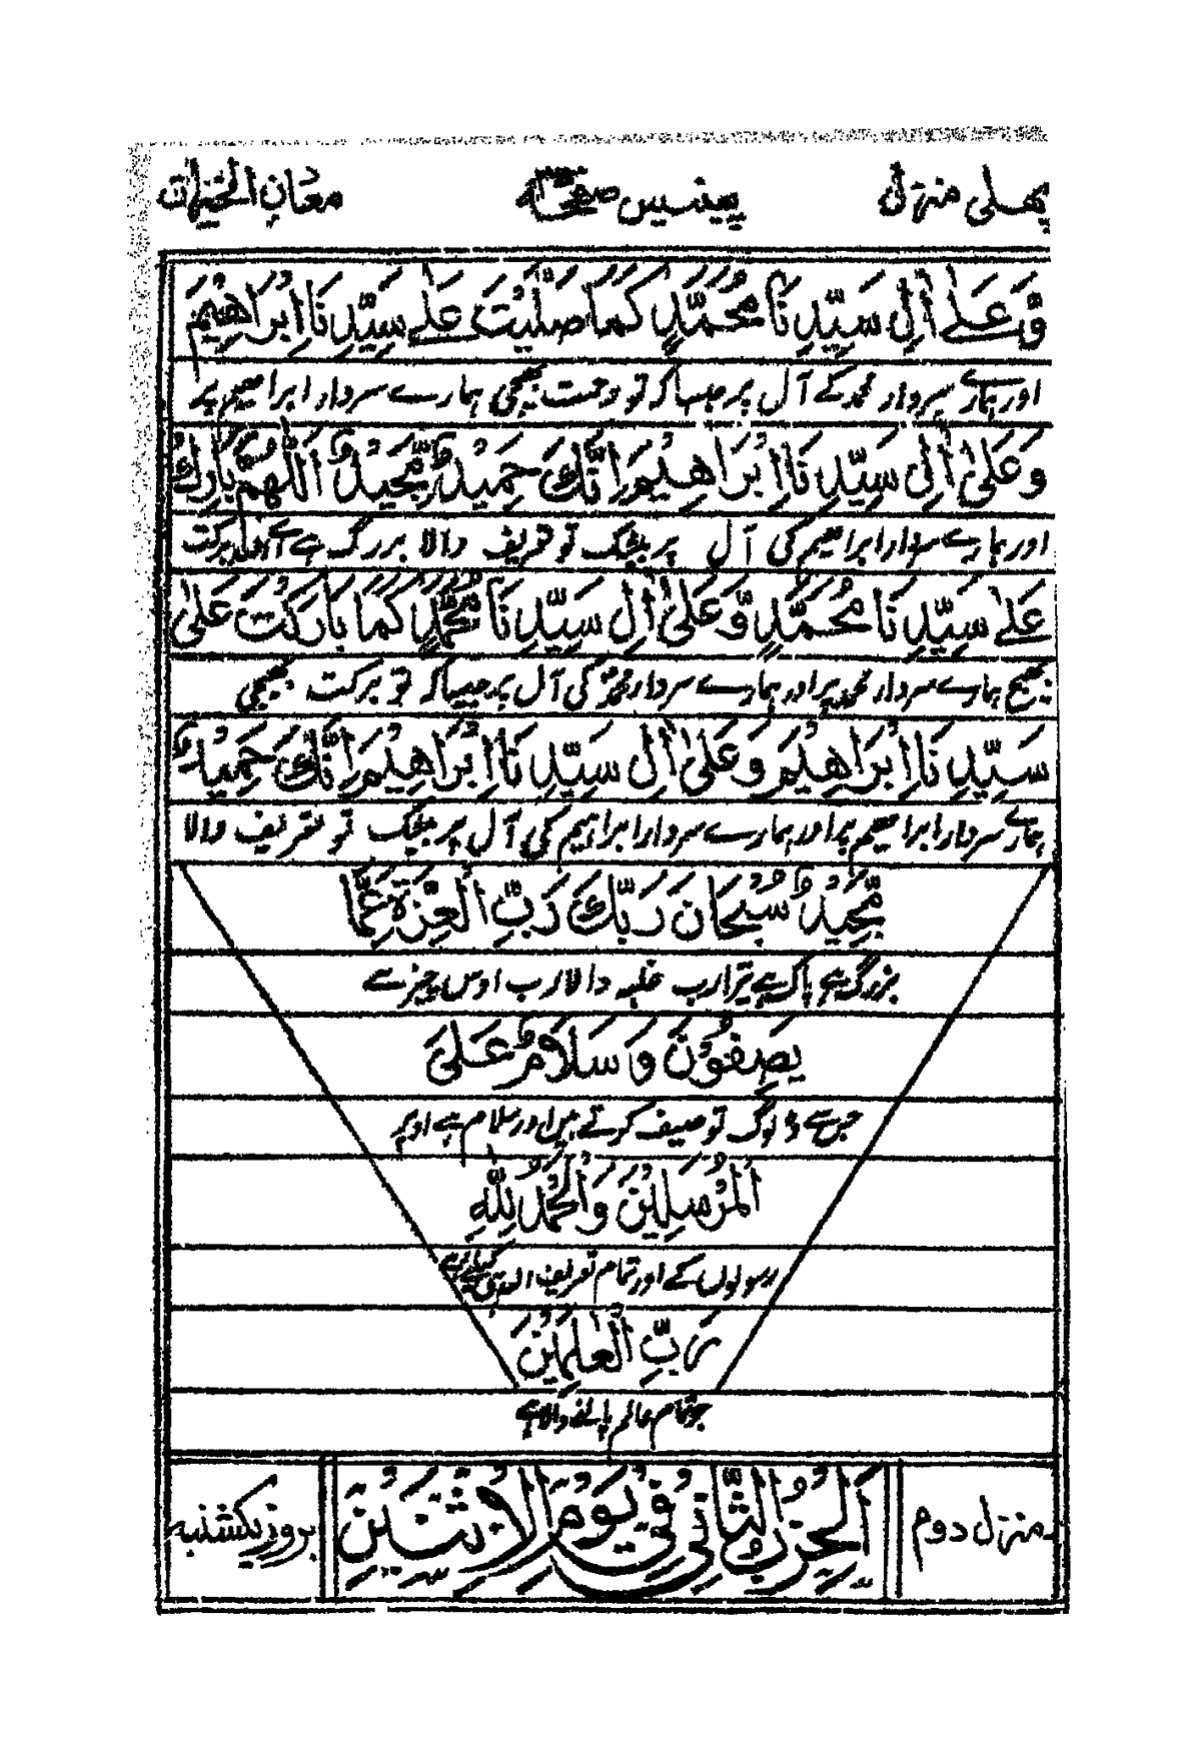 پہلی منزل پینتیس صفحہ معان الخیرات
وَّعَلٰٓی اٰلِ سَیِّدِنَا مُحَمَّدٍ کَمَا صَلَّیْتَ عَلٰے سَیِّدِنَا اِبْرَاھِیْمَ
اور ہمارے سردار محمد کے آل پر جیسا کہ تو رحمت بھیجی ہمارے سردار ابراھیم پر
وَعَلٰٓی اٰلِ سَیِّدِنَا اِبْرَاھِیْمَ اِنَّکَ حَمِیْدٌ مَّجِیْدٌ اَللّٰھُمَّ بَارِکْ
اور ہمارے سردار ابراھیم کی آل پر بیشک تو تعریف والا بزرگ ہے اے اللہ برکت
عَلٰے سَیِّدِنَا مُحَمَّدٍ وَّعَلٰٓی اٰلِ سَیِّدِنَا مُحَمَّدٍ کَمَا بَارَکْتَ عَلٰی
بھیج ہمارے سردار محمد پر اور ہمارے سردار محمد کی آل پر جیسا کہ تو برکت بھیجی
سَیِّدِنَا اِبْرَاھِیْمَ وَعَلٰٓی اٰلِ سَیِّدِنَا اِبْرَاھِیْمَ اِنَّکَ حَمِیْدٌ
ہمارے سردار ابراھیم پر اور ہمارے سردار ابراہیم کی آل پر بیشک تو تعریف والا
مَّجِیْدٌ سُبْحَانَ رَبِّکَ رَبِّ الْعِزَّةِ عَمَّا
بزرگ ہے پاک ہے تیرا رب غلبہ والا رب اوس چیز سے
یَصِفُوْنَ وَسَلَامٌ عَلَی
جس سے وہ لوگ توصیف کرتے ہیں اور سلام ہے اوپر
الْمُرْسَلِیْنَ وَالْحَمْدُ لِلّٰہِ
رسولوں کے اور تمام تعریف اللہ کیلئے ہے
رَبِّ الْعٰلَمِیْنَ
جو تمام عالم پالنے والا ہے
منزل دوم اَلْحِزْبُ الثَّانِیْ فِیْ یَوْمِ الْاِثْنَیْنِ بروز یکشنبہ